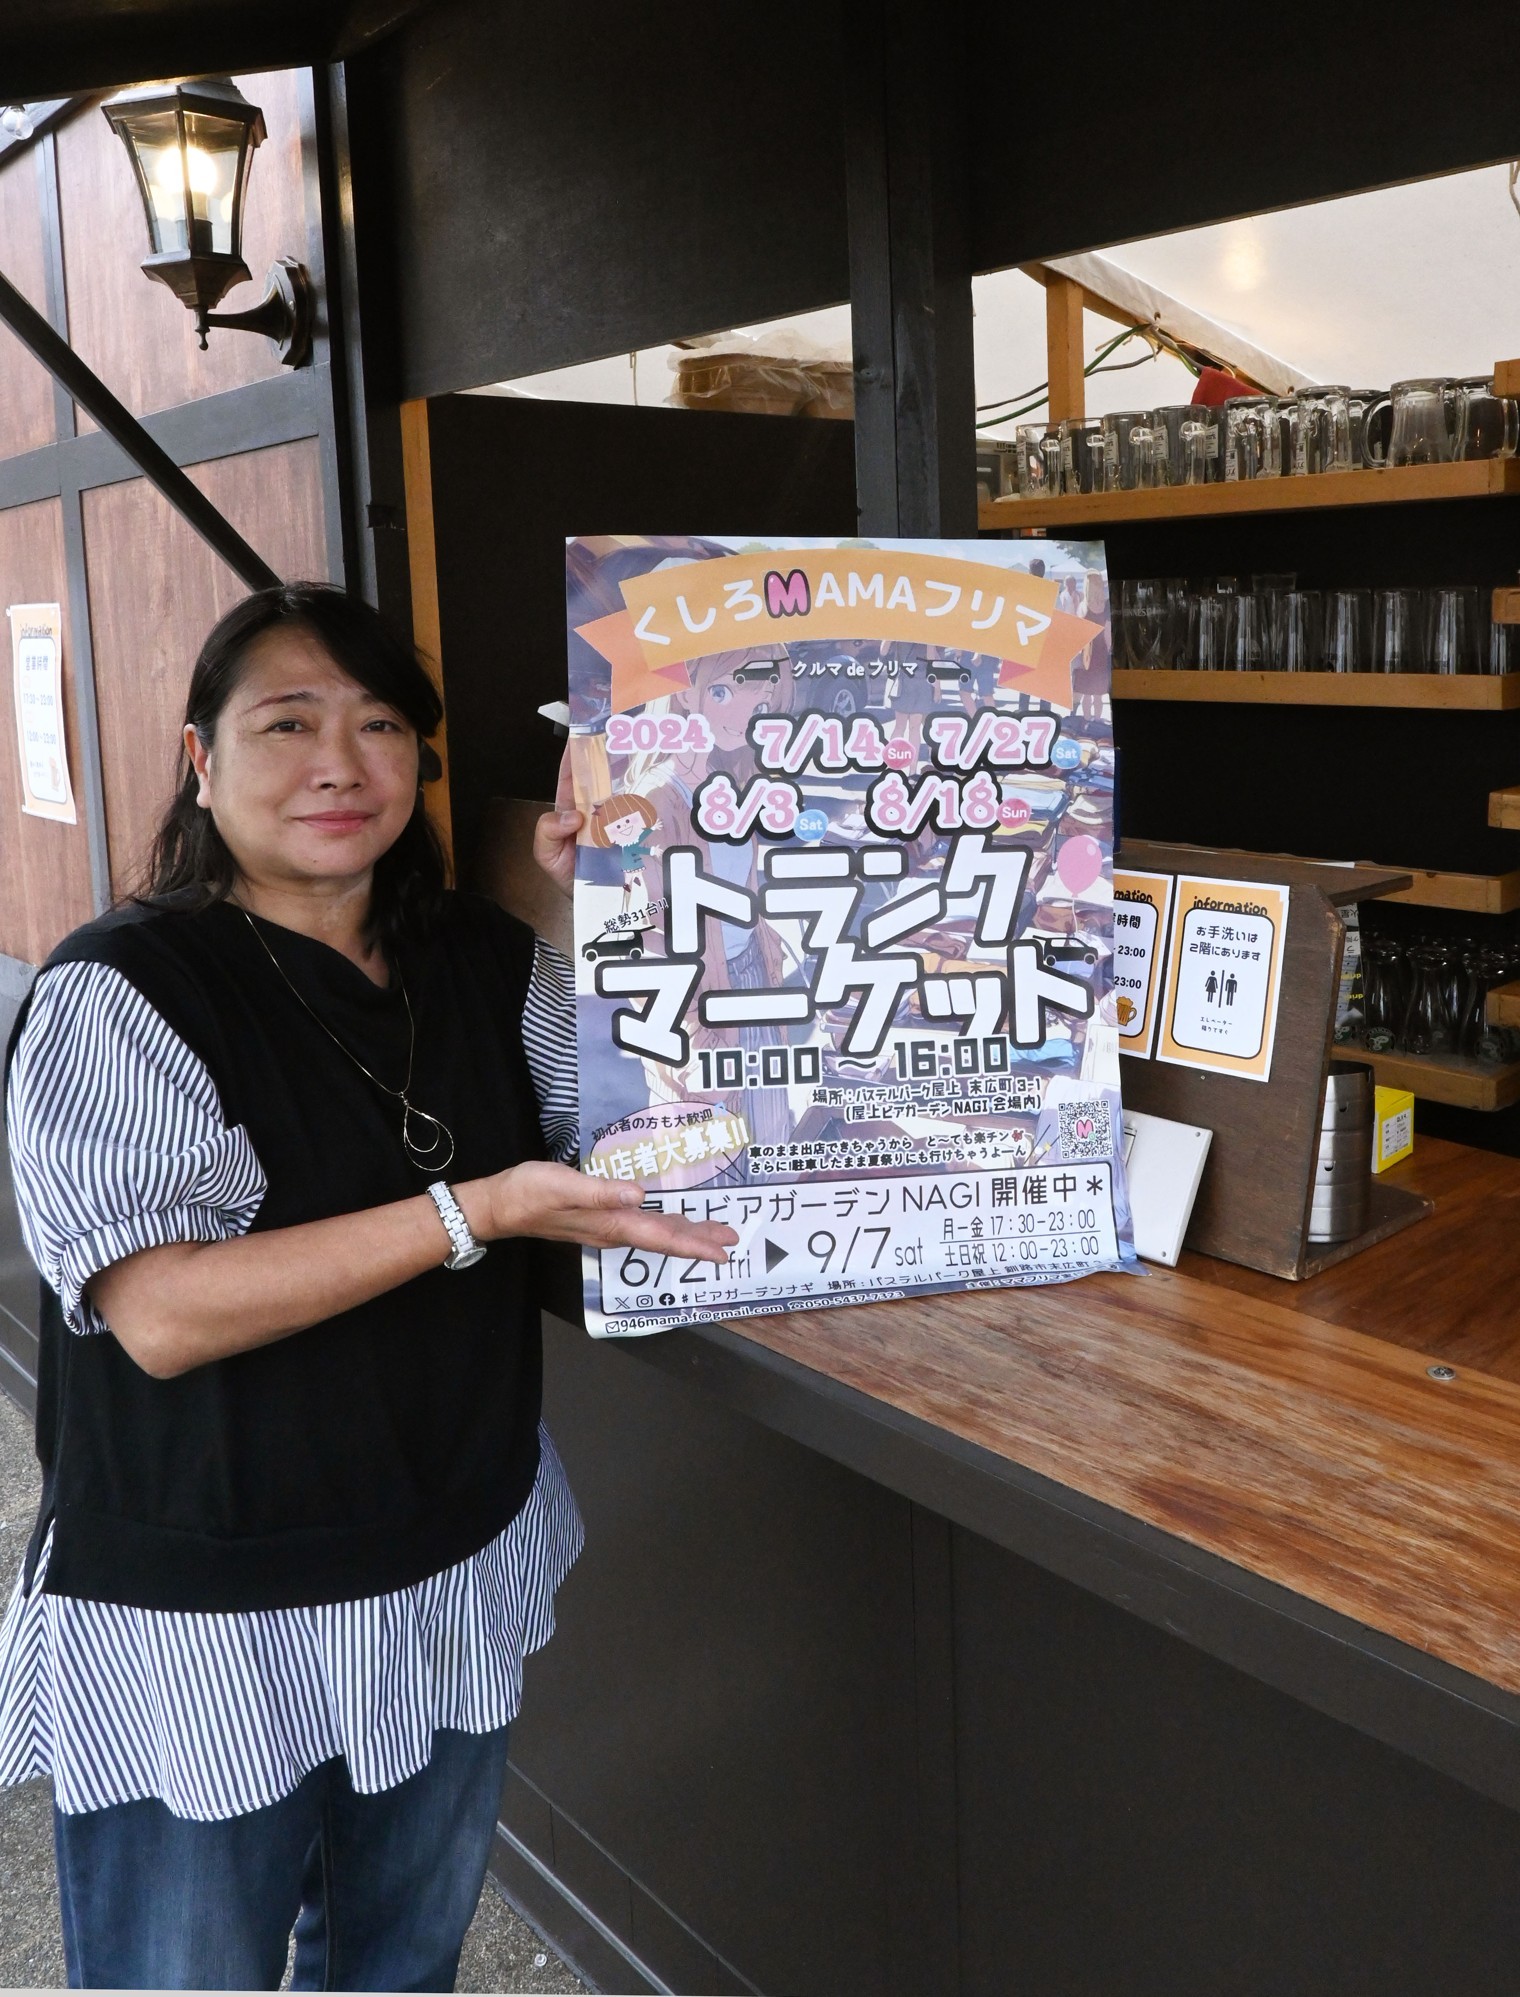 くしろMAMAフリマ
クルマ de フリマ
2024 7/14 Sun 7/27 Sat
8/3 Sat 8/18 Sun
総勢31台!!
トランク
マーケット
10:00 ~ 16:00
場所:パステルパーク屋上 末広町 3-1
(屋上ビアガーデン NAGI 会場内)
初心者の方も大歓迎
出店者大募集!!
車のまま出店できちゃうから と～ても楽チン
さらに!駐車したまま夏祭りにも行けちゃうよーん
屋上ビアガーデン NAGI 開催中*
6/21fri ▶ 9/7sat
月ー金 17:30-23:00
土日祝 12:00-23:00
#ビアガーデンナギ 場所:パステルパーク屋上 釧路市末広町
946mama.f@gmail.com ☎050-5437-7323
information
営業時間
17:30~23:00
12:00~23:00
mation
時間
23:00
23:00
information
お手洗いは
2階にあります
エレベーター